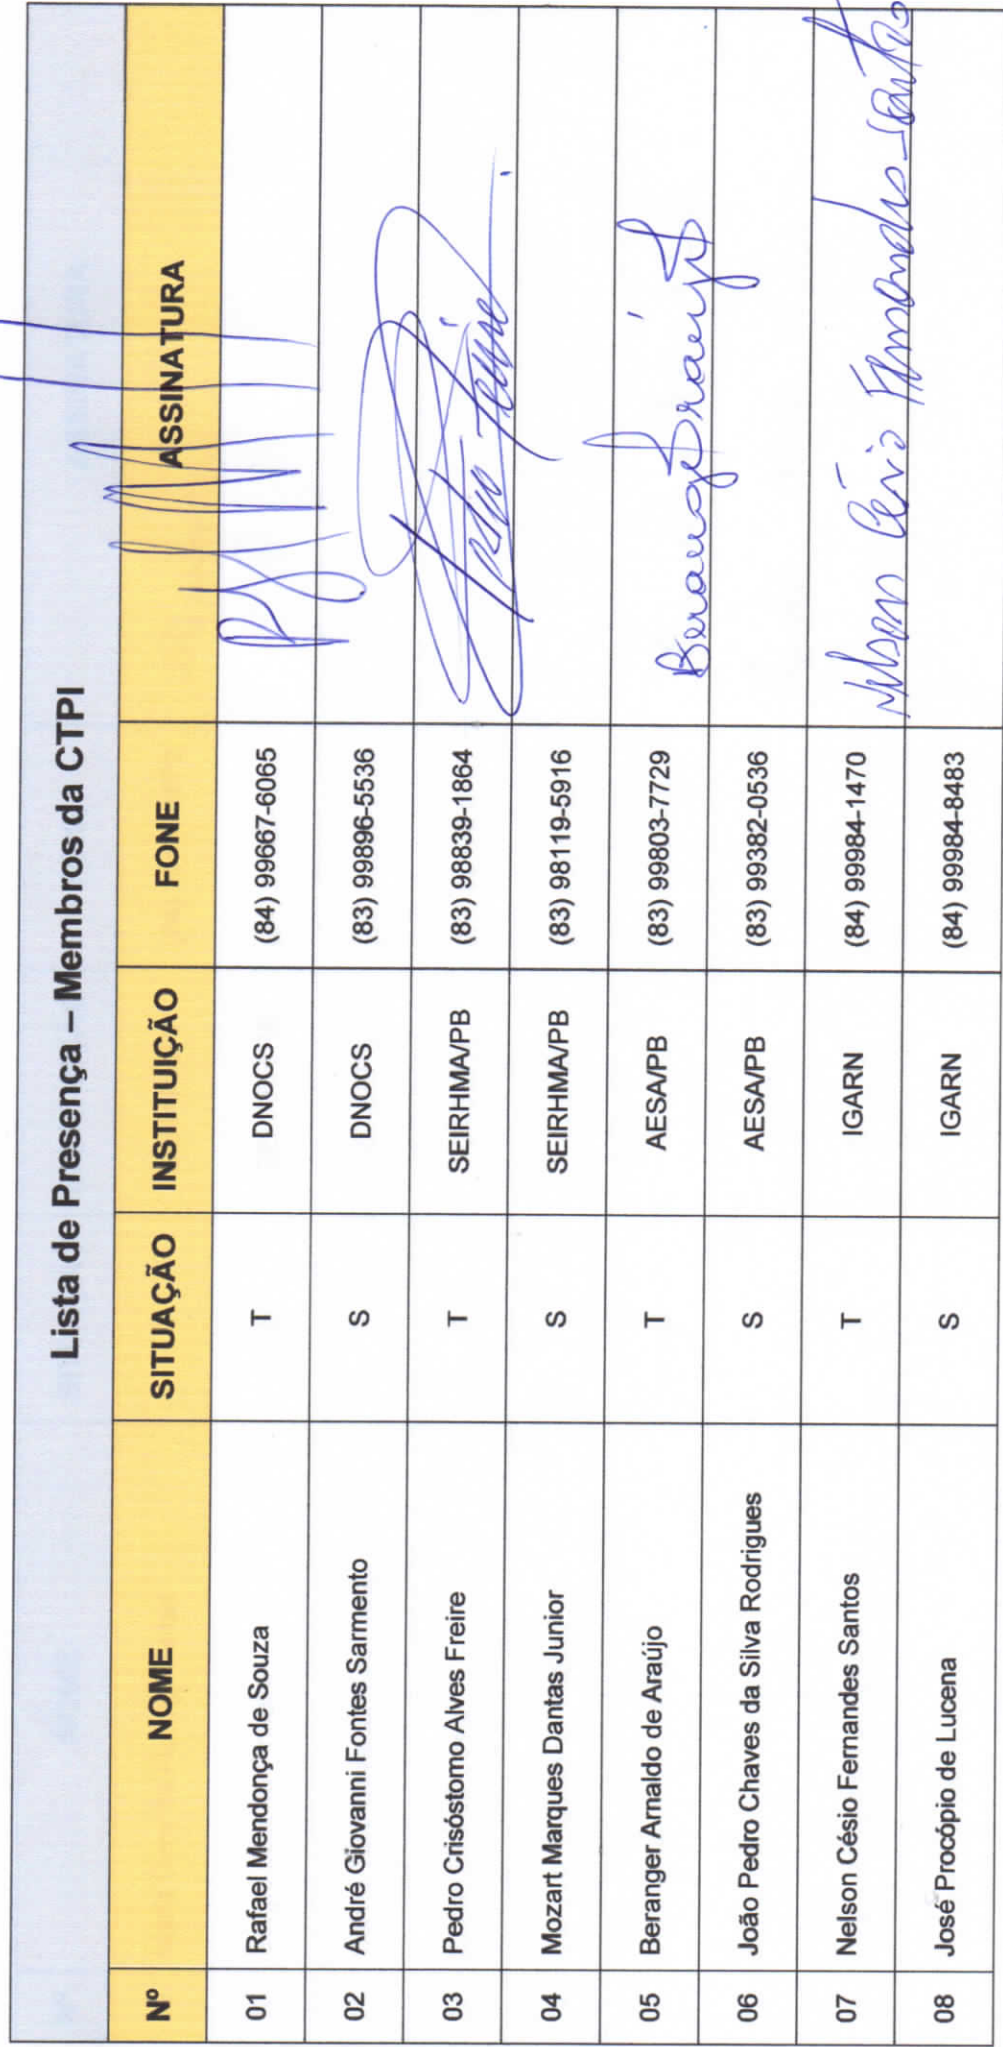 Lista de Presença – Membros da CTPI
Nº NOME SITUAÇÃO INSTITUIÇÃO FONE ASSINATURA
01 Rafael Mendonça de Souza T DNOCS (84) 99667-6065
02 André Giovanni Fontes Sarmento S DNOCS (83) 99896-5536
03 Pedro Crisóstomo Alves Freire T SEIRHMA/PB (83) 98839-1864
04 Mozart Marques Dantas Junior S SEIRHMA/PB (83) 98119-5916
05 Beranger Arnaldo de Araújo T AESA/PB (83) 99803-7729 Beranger Araújo
06 João Pedro Chaves da Silva Rodrigues S AESA/PB (83) 99382-0536
07 Nelson Césio Fernandes Santos T IGARN (84) 99984-1470 Nelson Césio Fernandes Santos
08 José Procópio de Lucena S IGARN (84) 99984-8483